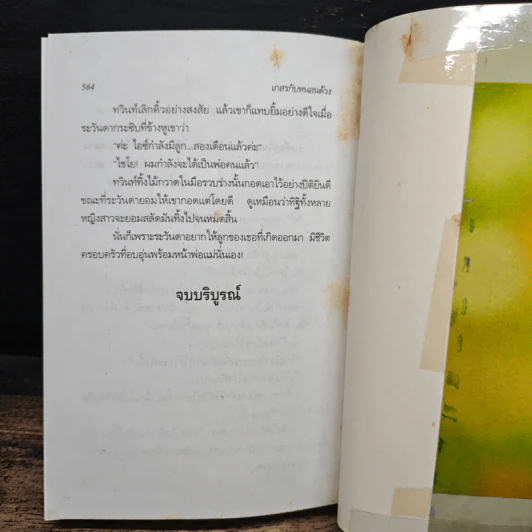 564
เกสรกับหนอนด้วง
ทวินท์เลิกคิ้วอย่างสงสัย แล้วเขาก็แทบยิ้มอย่างดีใจเมื่อ
ระวันดากระซิบที่ข้างหูเขาว่า
"ค่ะ ไอซ์กำลังมีลูก...สองเดือนแล้วค่ะ"
"ไชโย! ผมกำลังจะได้เป็นพ่อคนแล้ว"
ทวินท์ทิ้งไม้กวาดในมือรวบร่างนั้นกอดเอาไว้อย่างปิติยินดี
ขณะที่ระวันดายอมให้เขากอดแต่โดยดี ดูเหมือนว่าทิฐิทั้งหลาย
หญิงสาวจะยอมสลัดมันทิ้งไปจนหมดสิ้น
นั่นก็เพราะระวันดาอยากให้ลูกของเธอที่เกิดออกมา มีชีวิต
ครอบครัวที่อบอุ่นพร้อมหน้าพ่อแม่นั่นเอง!
จบบริบูรณ์